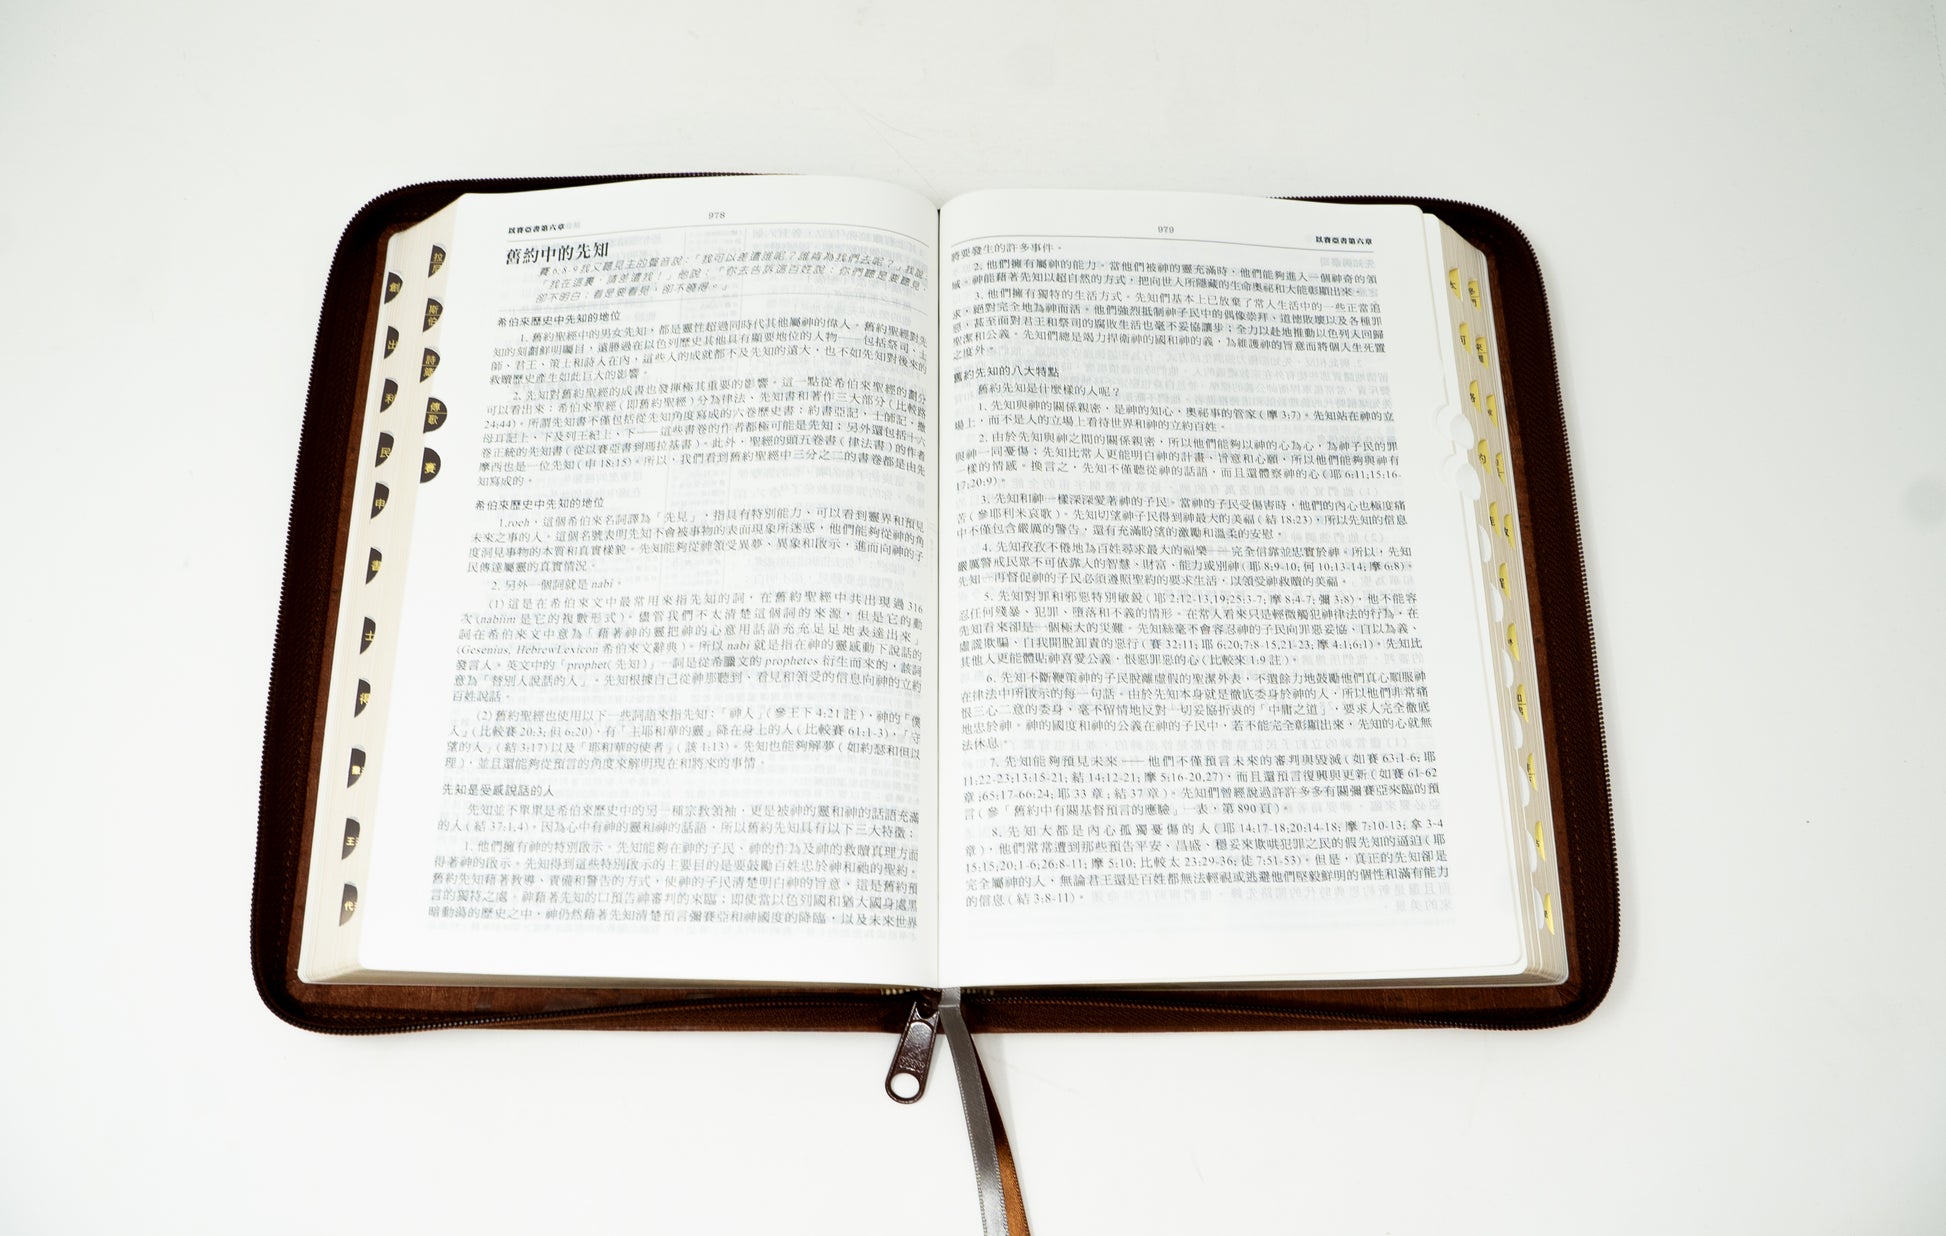 978
以賽亞書第六章
舊約中的先知
賽 6:8-9 我又聽見主的聲音說：「我可以差遣誰呢？誰肯為我們去呢？」我說：
「我在這裏，請差遣我！」他說：「你去告訴這百姓說：你們聽是要聽見，
卻不明白；看是要看見，卻不曉得。」
希伯來歷史中先知的地位
1. 舊約聖經中的男女先知，都是靈性超過同時代其他屬神的偉人。舊約聖經對先
知的刻劃鮮明矚目，遠勝過在以色列歷史其他具有顯要地位的人物——包括祭司、士
師、君王、策士和詩人在內，這些人的成就都不及先知的遠大，也不如先知對後來的
救贖歷史產生如此巨大的影響。
2. 先知對舊約聖經的成書也發揮極其重要的影響。這一點從希伯來聖經的劃分
可以看出來：希伯來聖經(即舊約聖經)分為律法、先知書和著作三大部分(比較路
24:44)。所謂先知書不僅包括從先知角度寫成的六卷歷史書：約書亞記、士師記、撒
母耳記上、下及列王紀上、下——這些書卷的作者都極可能是先知；另外還包括十六
卷正統的先知書(從以賽亞書到瑪拉基書)。此外，聖經的頭五卷書(律法書)的作者
摩西也是一位先知(申 18:15)。所以，我們看到舊約聖經中三分之二的書卷都是由先
知寫成的。
希伯來歷史中先知的地位
1.roeh，這個希伯來名詞譯為「先見」，指具有特別能力、可以看到靈界和預見
未來之事的人。這個名號表明先知不會被事物的表面現象所迷惑，他們能夠從神的角
度洞見事物的本質和真實樣貌。先知能夠從神領受異夢、異象和啟示，進而向神的子
民傳達屬靈的真實情況。
2. 另外一個詞就是 nabi。
(1) 這是在希伯來文中最常用來指先知的詞，在舊約聖經中共出現過 316
次(nabiim 是它的複數形式)。儘管我們不太清楚這個詞的來源，但是它的動
詞在希伯來文中意為「藉著神的靈把神的心意用話語充充足足地表達出來」
(Gesenius, HebrewLexicon 希伯來文辭典)。所以 nabi 就是指在神的靈感動下說話的
發言人。英文中的「prophet(先知)」一詞是從希臘文的 prophetes 衍生而來的，該詞
意為「替別人說話的人」。先知根據自己從神那聽到、看見和領受的信息向神的立約
百姓說話。
(2) 舊約聖經也使用以下一些詞語來指先知：「神人」(參王下 4:21 註)，神的「僕
人」(比較賽 20:3; 但 6:20)，有「主耶和華的靈」降在身上的人(比較賽 61:1-3)，「守
望的人」(結 3:17)以及「耶和華的使者」(該 1:13)。先知也能夠解夢(如約瑟和但以
理)，並且還能夠從預言的角度來解明現在和將來的事情。
先知是受感說話的人
先知並不單單是希伯來歷史中的另一種宗教領袖，更是被神的靈和神的話語充滿
的人(結 37:1,4)。因為心中有神的靈和神的話語，所以舊約先知具有以下三大特徵：
1. 他們擁有神的特別啟示。先知能夠在神的子民、神的作為及神的救贖真理方面
得著神的啟示。先知得到這些特別啟示的主要目的是要鼓勵百姓忠於神和祂的聖約。
舊約先知藉著教導、責備和警告的方式，使神的子民清楚明白神的旨意，這是舊約預
言的獨特之處。神藉著先知的口預告神審判的來臨；即使當以色列國和猶大國身處黑
暗動蕩的歷史之中，神仍然藉著先知清楚預言彌賽亞和神國度的降臨，以及未來世界
979
以賽亞書第六章
將要發生的許多事件。
2. 他們擁有屬神的能力。當他們被神的靈充滿時，他們能夠進入一個神奇的領
域。神能藉著先知以超自然的方式，把向世人所隱藏的生命奧祕和大能彰顯出來。
3. 他們擁有獨特的生活方式。先知們基本上已放棄了常人生活中的一些正當追
求，絕對完全地為神而活。他們強烈抵制神子民中的偶像崇拜、道德敗壞以及各種罪
惡，甚至面對君王和祭司的腐敗生活也毫不妥協讓步；全力以赴地推動以色列人回歸
聖潔和公義。先知們總是竭力捍衛神的國和神的義，為維護神的旨意而將個人生死置
之度外。
舊約先知的八大特點
舊約先知是什麼樣的人呢？
1. 先知與神的關係親密，是神的知心，奧祕事的管家(摩 3:7)。先知站在神的立
場上，而不是人的立場上看待世界和神的立約百姓。
2. 由於先知與神之間的關係親密，所以他們能夠以神的心為心，為神子民的罪
與神一同憂傷；先知比常人更能明白神的計畫、旨意和心願，所以他們能夠與神有
一樣的情感。換言之，先知不僅聽從神的話語，而且還體察神的心(耶 6:11;15:16-
17;20:9)。
3. 先知和神一樣深深愛著神的子民。當神的子民受傷害時，他們的內心也極度痛
苦(參耶利米哀歌)。先知切望神子民得到神最大的美福(結 18:23)，所以先知的信息
中不僅包含嚴厲的警告，還有充滿盼望的激勵和溫柔的安慰。
4. 先知孜孜不倦地為百姓尋求最大的福樂——完全信靠並忠實於神。所以，先知
嚴厲警戒民眾不可依靠人的智慧、財富、能力或別神(耶 8:9-10; 何 10:13-14; 摩 6:8)。
先知一再督促神的子民必須遵照聖約的要求生活，以領受神救贖的美福。
5. 先知對罪和邪惡特別敏銳(耶 2:12-13,19;25:3-7; 摩 8:4-7; 彌 3:8)，他不能容
忍任何殘暴、犯罪、墮落和不義的情形。在常人看來只是輕微觸犯神律法的行為，在
先知看來卻是一個極大的災難。先知絲毫不會容忍神的子民向罪惡妥協，自以為義、
虛謊欺騙、自我開脫卸責的惡行(賽 32:11; 耶 6:20;7:8-15,21-23; 摩 4:1;6:1)。先知比
其他人更能體貼神喜愛公義，恨惡罪惡的心(比較來 1:9 註)。
6. 先知不斷鞭策神的子民脫離虛假的聖潔外表，不遺餘力地鼓勵他們真心順服神
在律法中所啟示的每一句話。由於先知本身就是徹底委身於神的人，所以他們非常痛
恨三心二意的委身，毫不留情地反對一切妥協折衷的「中庸之道」，要求人完全徹底
地忠於神。神的國度和神的公義在神的子民中，若不能完全彰顯出來，先知的心就無
法休息。
7. 先知能夠預見未來——他們不僅預言未來的審判與毀滅(如賽 63:1-6; 耶
11:22-23;13:15-21; 結 14:12-21; 摩 5:16-20,27)，而且還預言復興與更新(如賽 61-62
章;65:17-66:24; 耶 33 章；結 37 章)。先知們曾經說過許許多多有關彌賽亞來臨的預
言(參「舊約中有關基督預言的應驗」一表，第 890 頁)。
8. 先知大都是內心孤獨憂傷的人(耶 14:17-18;20:14-18; 摩 7:10-13; 拿 3-4
章)，他們常常遭到那些預告平安、昌盛、穩妥來欺哄犯罪之民的假先知的逼迫(耶
15:15;20:1-6;26:8-11; 摩 5:10; 比較太 23:29-36; 徒 7:51-53)。但是，真正的先知卻是
完全屬神的人，無論君王還是百姓都無法輕視或逃避他們堅毅鮮明的個性和滿有能力
的信息(結 3:8-11)。
創
出
利
民
申
書
士
得
撒
王
代
拉
斯
詩
箴
傳
歌
賽